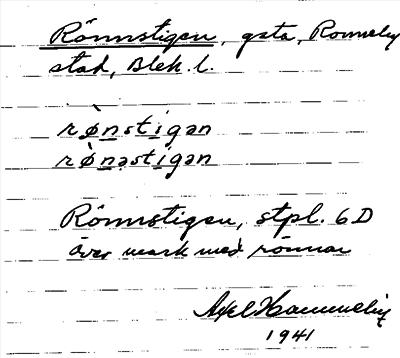 Rönnstigen, gata, Ronneby
stad, Blek. l.
rø̀nstigən
rø̀nəstigən
Rönnstigen, stpl. 6D
över mark med rönnar
Axel Hammelin
1941